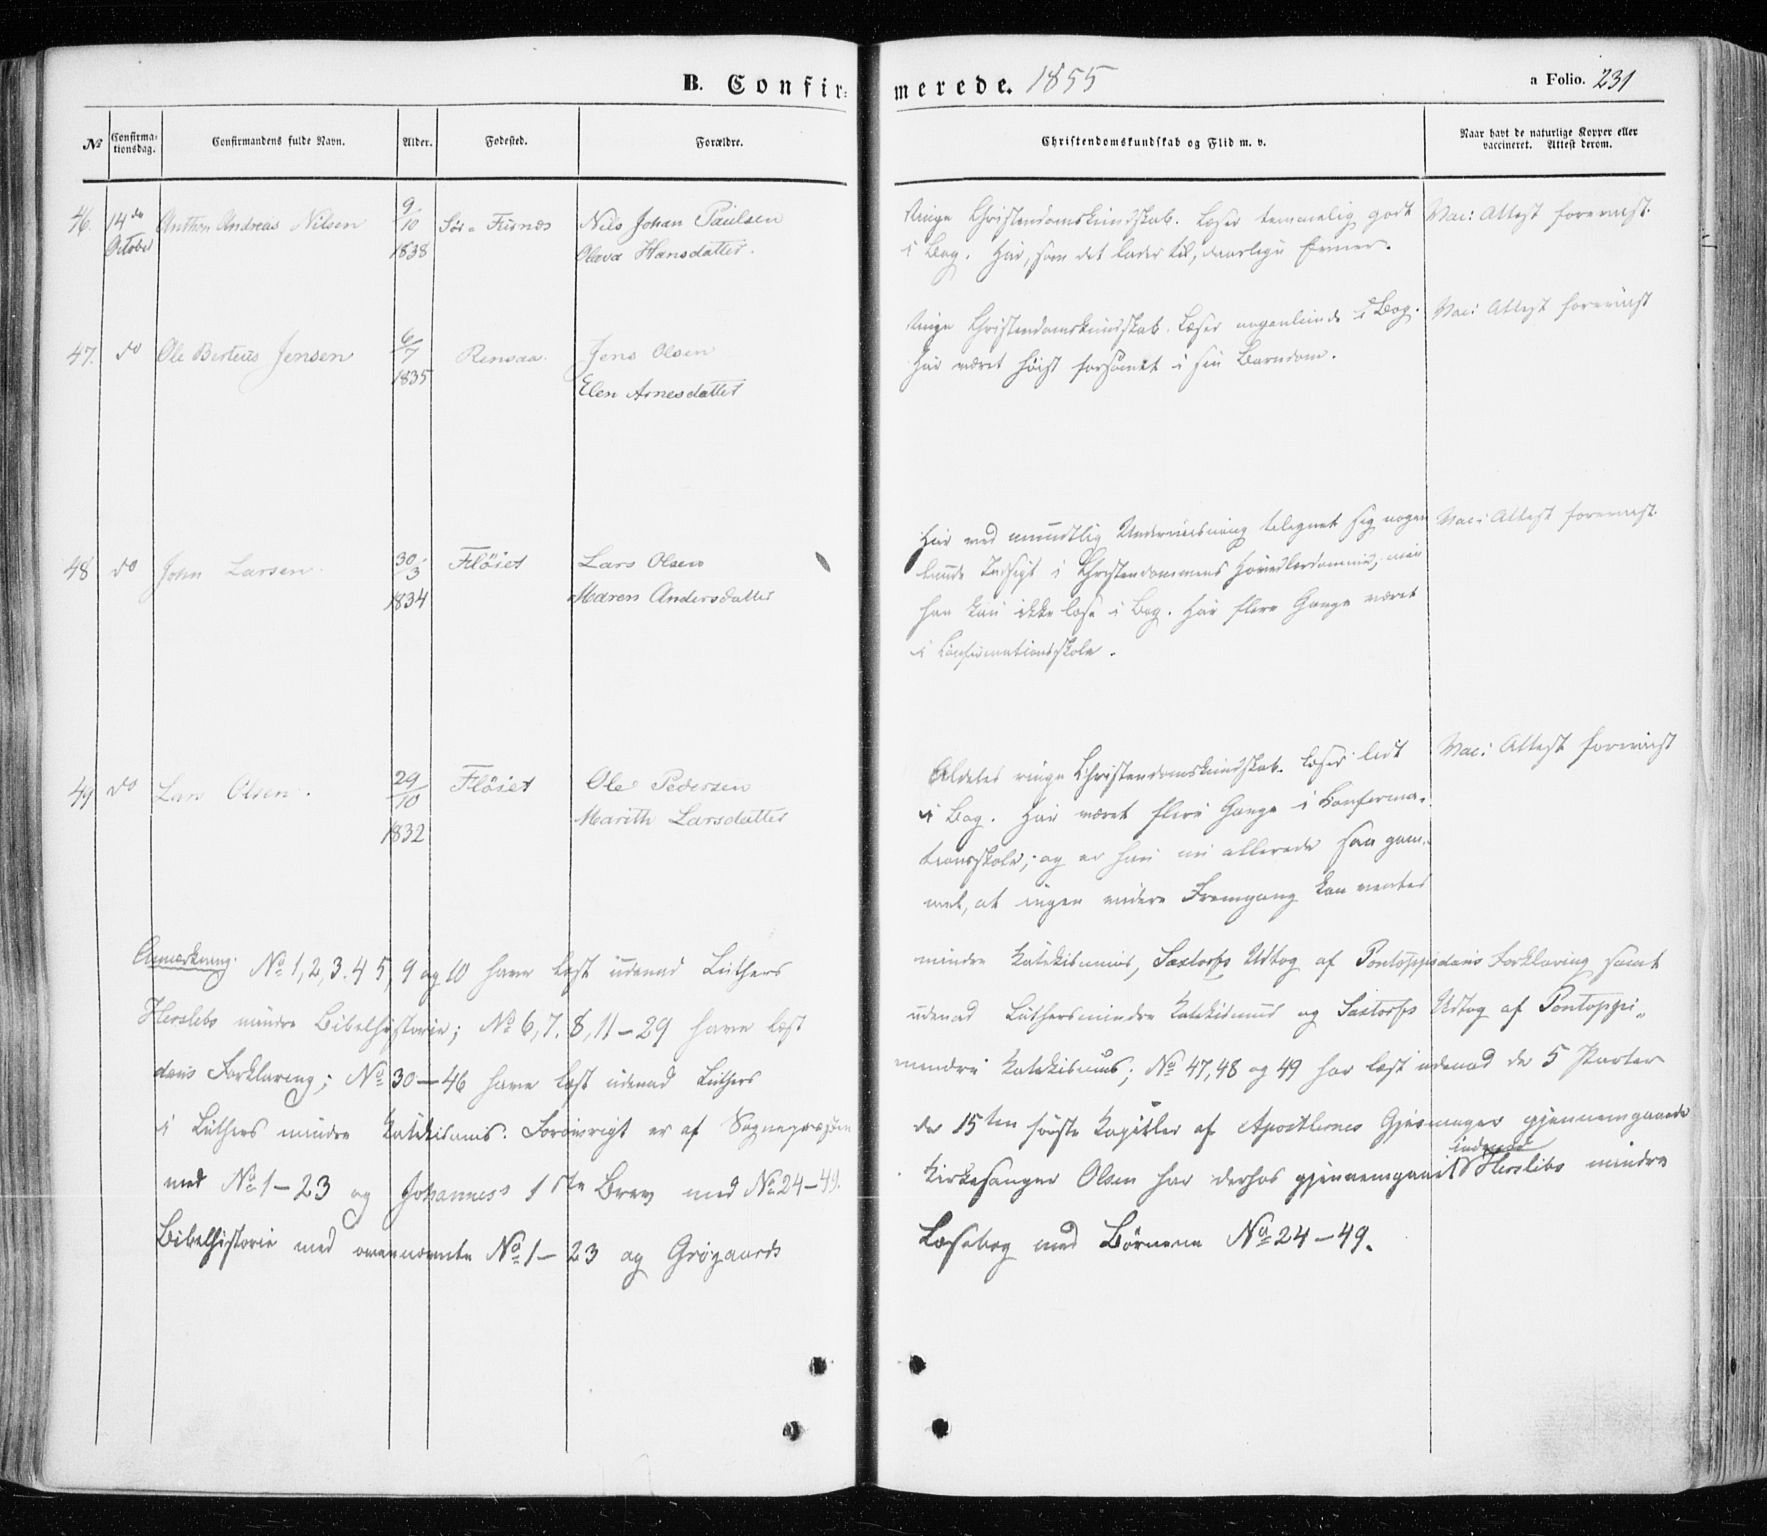 B. Confirmerede. 1855
a Folio. 231
No Confirmationsdag. Confirmandens fulde Navn. Alder. Fødested. Forældre. Christendomskundskab og Flid m. v. Naar havt de naturlige Kopper eller vaccineret. Attest derom.
46. 14de October Anthon Andreas Nilsen 9/10 1838 Sör-Fürnes Nils Johan Paulsen
Olava Hansdatter.
Ringe Christendomskundskab. Læser temmelig godt
i Bog. Har, som det lader til, daarlige Evner.
Vac: Attest foreviist.
47. do Ole Berteüs Jensen 6/7 1835 Rensaa. Jens Olsen
Elen Arnesdatter
Ringe Christendomskundskab. Læser nogenlunde i Bog.
Har været høist forsømt i sin Barndom.
Vac: Attest foreviist
48 do John Larsen. 30/3 1834 Flöiet Lars Olsen
Maren Andersdatter
Har ved mundtlig Underviisning tilegnet sig nogen
lunde Indsigt i Christendommens Hovedlærdomme; men
han kan ikke læse i Bog. Har flere Gange været
i Confirmationsskole.
Vac: Attest foreviist.
49 do Lars Olsen. 29/10 1832 Flöiet Ole Pedersen
Marith Larsdatter
Aldeles ringe Christendomskundskab. Læser lidt
i Bog. Har været flere Gange i Konfirma-
tionsskole; og er han nu allerede saa gam-
mel, at ingen videre Fremgang kan ventes
Vac: Attest foreviist
Anmærkning. No 1, 2, 3. 4 5, 9 og 10 have læst udenad Luthers mindre Katekismus, Saxtorfs Udtog af Pontoppidans Forklaring samt
Herslebs mindre Bibelhistorie; No 6, 7, 8, 11-29 have læst udenad Luthers mindre Katekismus og Saxtorfs Udtog af Pontoppi-
dans Forklaring; No 30-46 have læst udenad Luthers mindre Katekismus; No 47, 48 og 49 har læst udenad de 5 Parter
i Luthers mindre Katekismus. Forøvrigt er af Sognepræsten de 15ten første Kapitler af Apostlernes Gjerninger gjennemgaaede
med No 1-23 og Johannes's 1ste Brev med No 24-49. Kirkesanger Olsen har derhos gjennemgaaet Herslebs mindre
Bibelhistorie med ovennævnte No 1-23 og Grøgaards Læsebog med Børnene No 24-49.